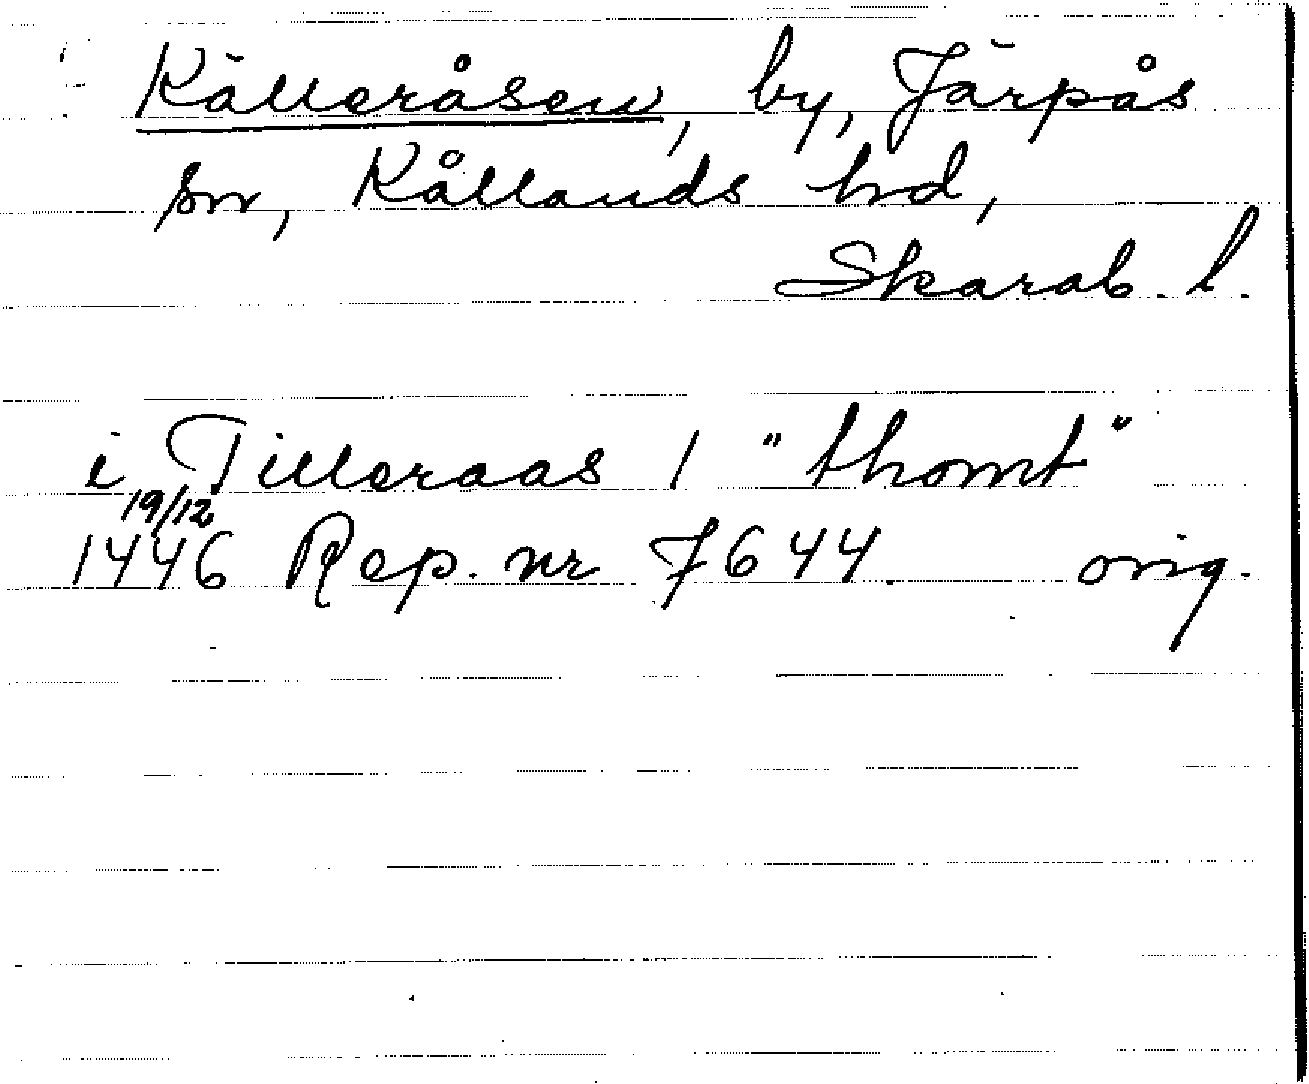 Källeråsen, by, Järpås
sn, Kållands hd,
Skarab. l.
i Tilleraas 1 "thomt"
19/12
1446 Rep. nr 7644 orig.